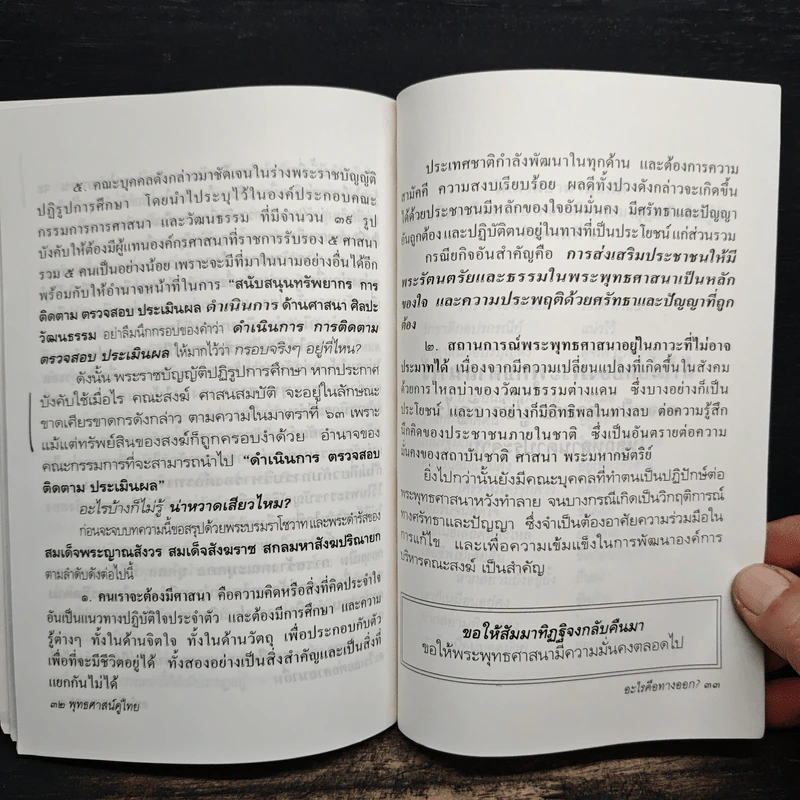 ๕. คณะบุคคลดังกล่าวมาชัดเจนในร่างพระราชบัญญัติ
ปฏิรูปการศึกษา โดยนำไประบุไว้ในองค์ประกอบคณะ
กรรมการการศาสนา และวัฒนธรรม ที่มีจำนวน ๓๙ รูป
บังคับให้ต้องมีผู้แทนองค์กรศาสนาที่ราชการรับรอง ๕ ศาสนา
รวม ๕ คนเป็นอย่างน้อย เพราะจะมีที่มาในนามอย่างอื่นได้อีก
พร้อมกับให้อำนาจหน้าที่ในการ “สนับสนุนทรัพยากร การ
ติดตาม ตรวจสอบ ประเมินผล ดำเนินการ ด้านศาสนา ศิลปะ
วัฒนธรรม อย่าลืมนึกกรอบของคำว่า ดำเนินการ การติดตาม
ตรวจสอบ ประเมินผล ให้มากไว้ว่า กรอบจริงๆ อยู่ที่ไหน?
ดังนั้น พระราชบัญญัติปฏิรูปการศึกษา หากประกาศ
บังคับใช้เมื่อไร คณะสงฆ์ ศาสนสมบัติ จะอยู่ในลักษณะ
ขาดเศียรขาดกรดังกล่าว ตามความในมาตราที่ ๖๓ เพราะ
แม้แต่ทรัพย์สินของสงฆ์ก็ถูกครอบงำด้วย อำนาจของ
คณะกรรมการที่จะสามารถนำไป “ดำเนินการ ตรวจสอบ
ติดตาม ประเมินผล”
อะไรบ้างก็ไม่รู้ น่าหวาดเสียวไหม?
ก่อนจะจบบทความนี้ขอสรุปด้วยพระบรมราโชวาท และพระดำรัสของ
สมเด็จพระญาณสังวร สมเด็จสังฆราช สกลมหาสังฆปริณายก
ตามลำดับดังต่อไปนี้
๑. คนเราจะต้องมีศาสนา คือความคิดหรือสิ่งที่คิดประจำใจ
อันเป็นแนวทางปฏิบัติใจประจำตัว และต้องมีการศึกษา และความ
รู้ต่างๆ ทั้งในด้านจิตใจ ทั้งในด้านวัตถุ เพื่อประกอบกับตัว
เพื่อที่จะมีชีวิตอยู่ได้ ทั้งสองอย่างเป็นสิ่งสำคัญและเป็นสิ่งที่
แยกกันไม่ได้
๓๒ พุทธศาสน์คู่ไทย
ประเทศชาติกำลังพัฒนาในทุกด้าน และต้องการความ
สามัคคี ความสงบเรียบร้อย ผลดีทั้งปวงดังกล่าวจะเกิดขึ้น
ได้ด้วยประชาชนมีหลักของใจอันมั่นคง มีศรัทธาและปัญญา
อันถูกต้อง และปฏิบัติตนอยู่ในทางที่เป็นประโยชน์ แก่ส่วนรวม
กรณียกิจอันสำคัญคือ การส่งเสริมประชาชนให้มี
พระรัตนตรัยและธรรมในพระพุทธศาสนาเป็นหลัก
ของใจ และความประพฤติด้วยศรัทธาและปัญญาที่ถูก
ต้อง
๒. สถานการณ์พระพุทธศาสนาอยู่ในภาวะที่ไม่อาจ
ประมาทได้ เนื่องจากมีความเปลี่ยนแปลงที่เกิดขึ้นในสังคม
ด้วยการไหลบ่าของวัฒนธรรมต่างแดน ซึ่งบางอย่างก็เป็น
ประโยชน์ และบางอย่างก็มีอิทธิพลในทางลบ ต่อความรู้สึก
นึกคิดของประชาชนภายในชาติ ซึ่งเป็นอันตรายต่อความ
มั่นคงของสถาบันชาติ ศาสนา พระมหากษัตริย์
ยิ่งไปกว่านั้นยังมีคณะบุคคลที่ทำตนเป็นปฏิปักษ์ต่อ
พระพุทธศาสนาหวังทำลาย จนบางกรณีเกิดเป็นวิกฤติการณ์
ทางศรัทธาและปัญญา ซึ่งจำเป็นต้องอาศัยความร่วมมือใน
การแก้ไข และเพื่อความเข้มแข็งในการพัฒนาองค์การ
บริหารคณะสงฆ์ เป็นสำคัญ
ขอให้สัมมาทิฏฐิจงกลับคืนมา
ขอให้พระพุทธศาสนามีความมั่นคงตลอดไป
อะไรคือทางออก? ๓๓